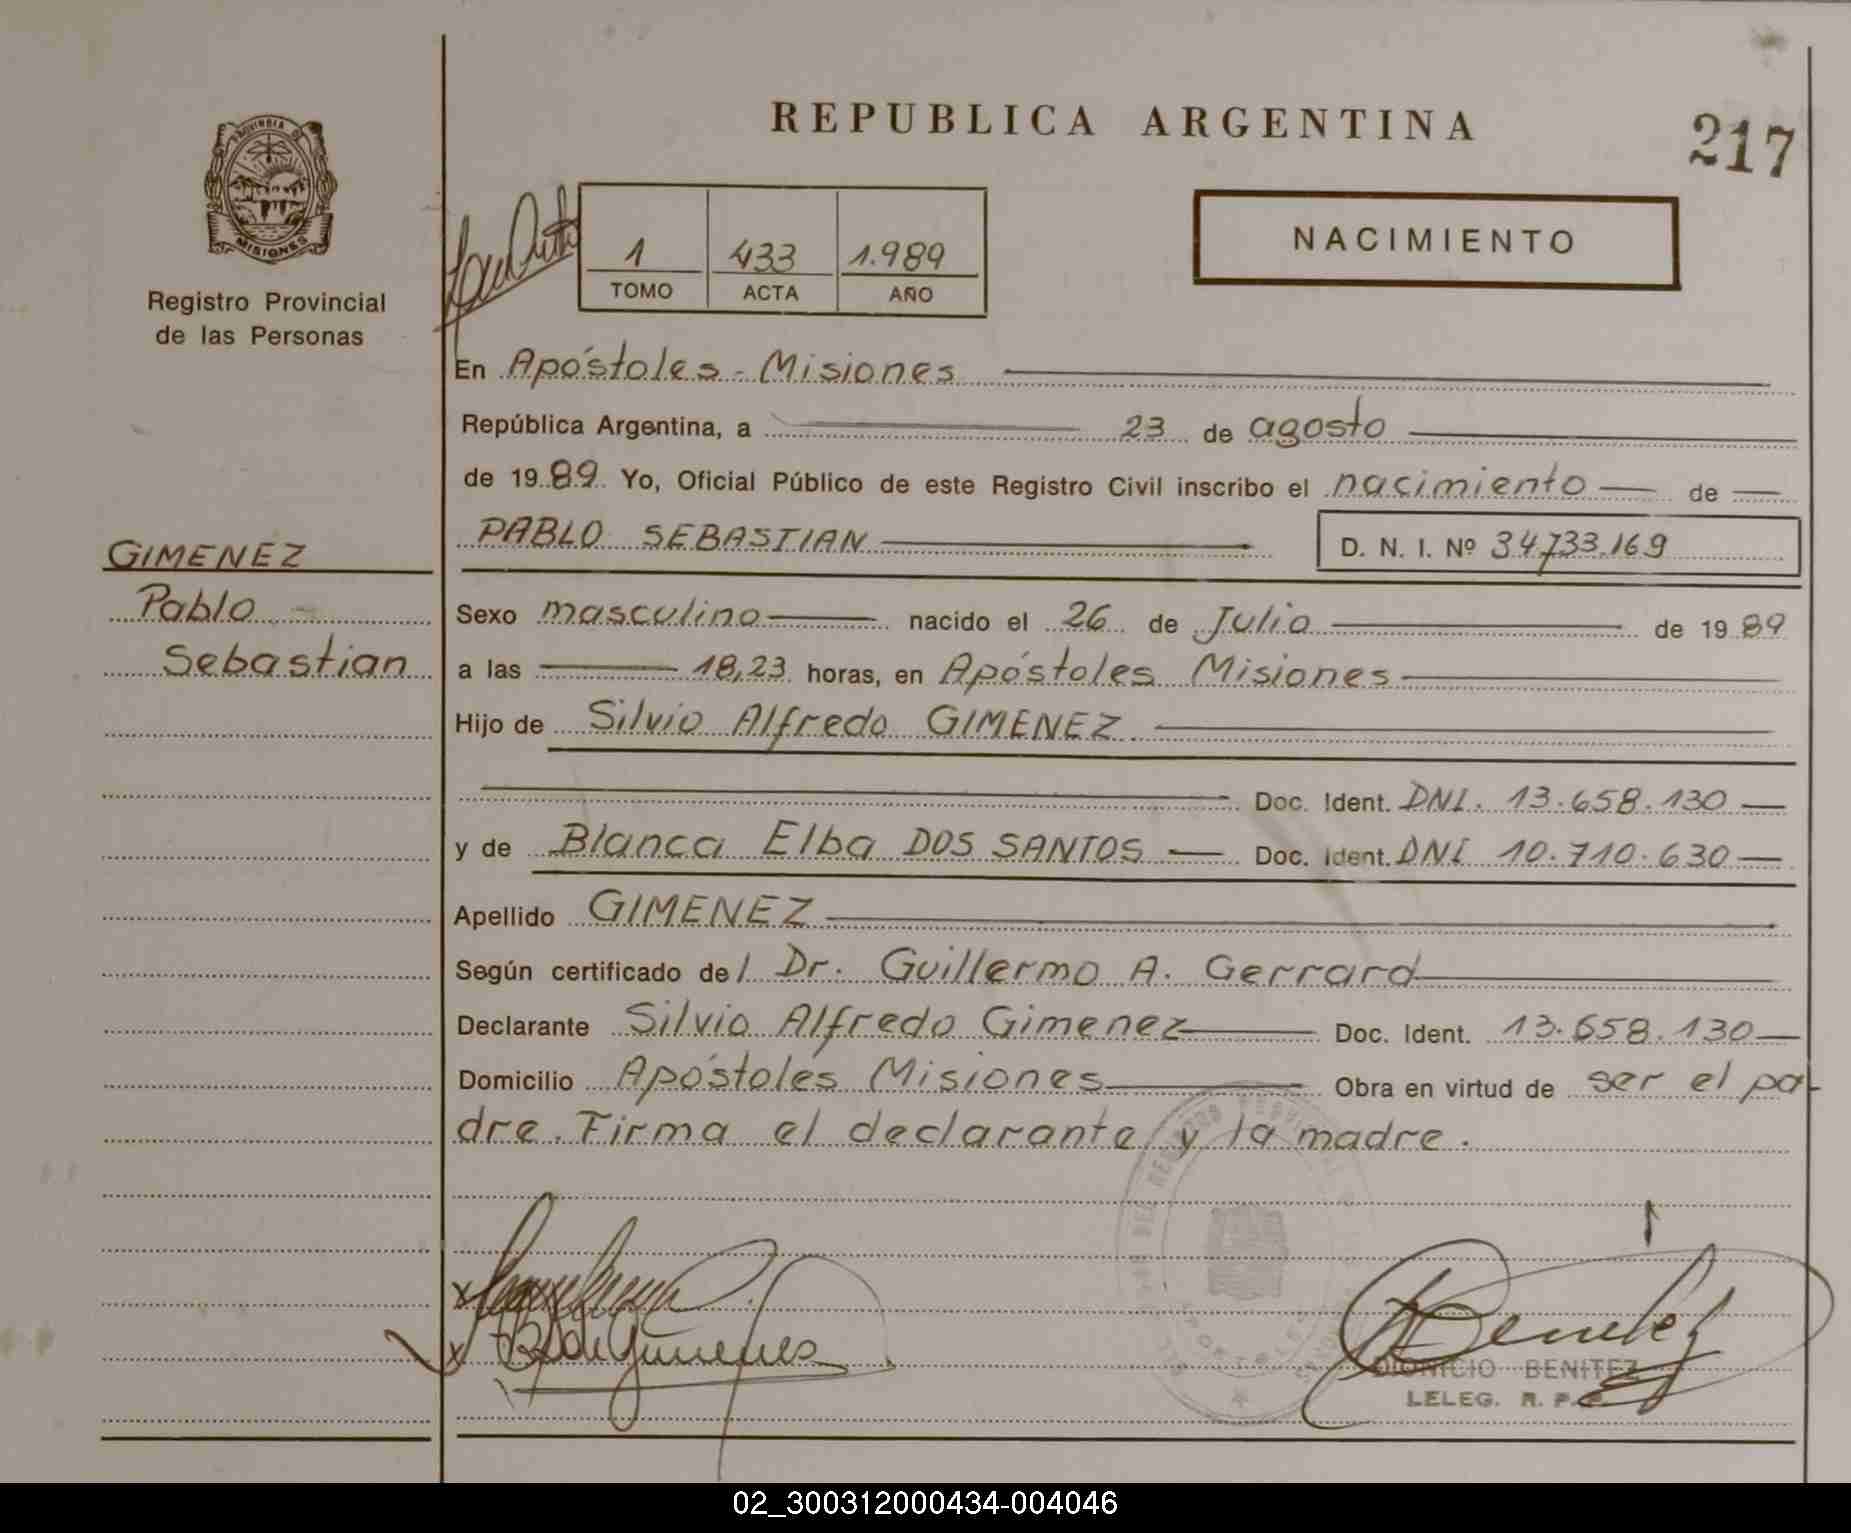 REPUBLICA ARGENTINA
217
PROVINCIA DE
MISIONES
Registro Provincial
de las Personas
1 433 1.989
TOMO ACTA AÑO
NACIMIENTO
En Apóstoles - Misiones
República Argentina, a 23 de agosto
de 1989 Yo, Oficial Público de este Registro Civil inscribo el nacimiento de
PABLO SEBASTIAN D. N. I. Nº 34733.169
GIMENEZ
Pablo
Sebastian
Sexo masculino nacido el 26 de Julio de 1989
a las 18,23 horas, en Apóstoles Misiones
Hijo de Silvio Alfredo GIMENEZ.
Doc. Ident. DNI. 13.658.130
y de Blanca Elba DOS SANTOS Doc. Ident. DNI 10.710.630
Apellido GIMENEZ
Según certificado del Dr. Guillermo A. Gerrard
Declarante Silvio Alfredo Gimenez Doc. Ident. 13.658.130
Domicilio Apóstoles Misiones Obra en virtud de ser el pa-
dre. Firma el declarante y la madre.
B de Gimenes
Benitez
DIONICIO BENITEZ
LELEG. R. P.
02_300312000434-004046